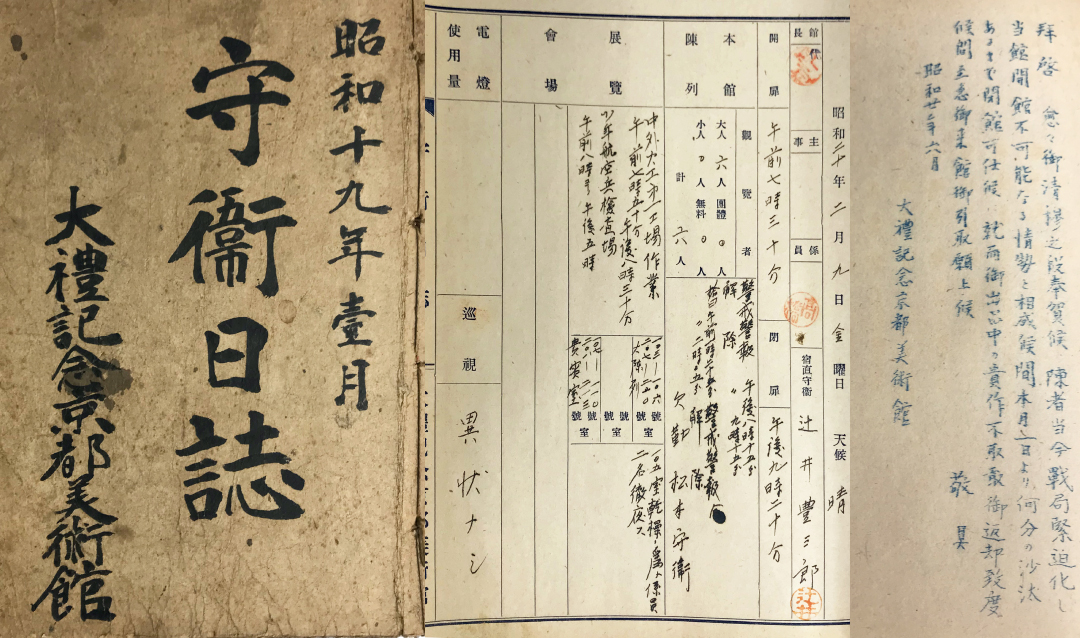 昭和十九年壹月
守衞日誌
大禮記念京都美術館
昭和二十年二月九日金曜日 天候 晴
館長
主事
係員
宿直守衞 辻井豊三郎
開扉 午前七時三十分 閉扉 午後九時二十分
本館陳列
觀覽者
大人 六人 團體 〇人
小人 〇人 無料 〇人
計 六人
警戒警報 午後八時十五分
解除 〃 九時十五分
欠勤 松本守衞
展覽會場
中外火工木工場作業
午前七時五十分 午後八時三十分
少年航空兵檢查場
午前八時ヨリ午後五時
號室
號室
號室
號室
貴賓室
一〇五室乾燥ノ爲メ係員
二名徹夜ス
電燈使用量
巡視 異狀ナシ
拜啓 愈々御清穆之段奉賀候 陳者当今戰局緊迫化し
当館開館不可能なる情勢と相成候間本月 日より何分の沙汰
あるまで閉館可仕候 就而御出品中の貴作不取敢御返却致度
候間至急御来館御引取願上候
敬具
昭和廿年六月
大禮記念京都美術館